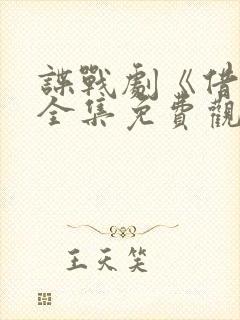 諜戰劇《借
全集免費觀
王天笑